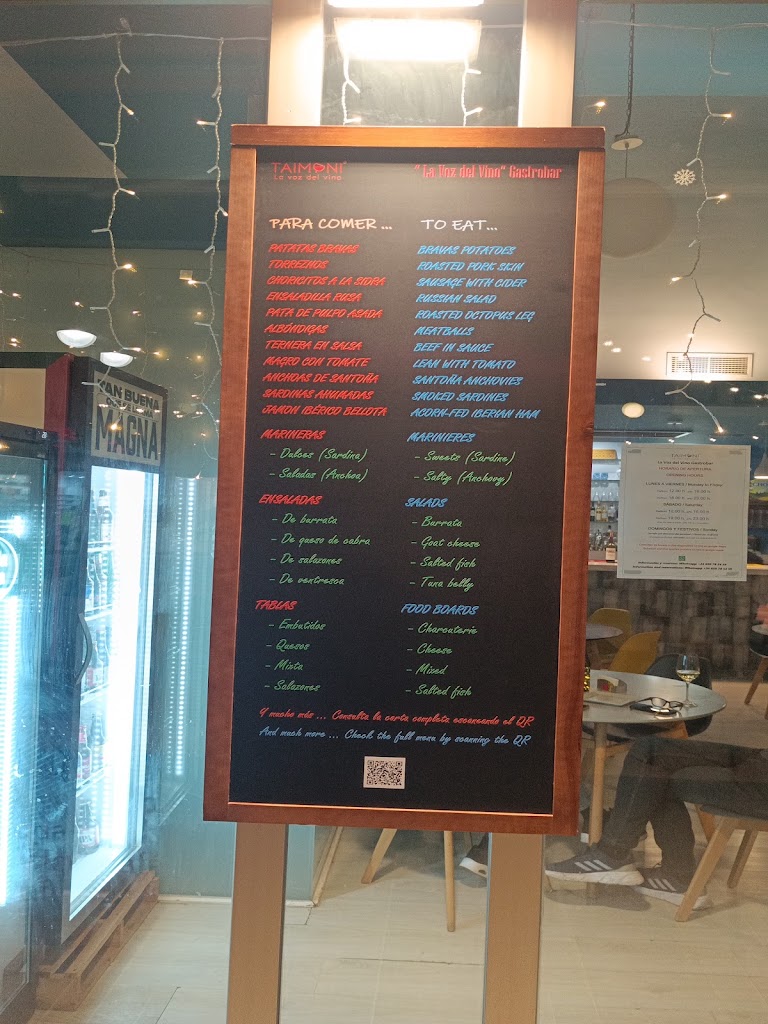 TAIMONI
La voz del vino
"La Voz del Vino" Gastrobar
PARA COMER ...
PATATAS BRAVAS
TORREZNOS
CHORICITOS A LA SIDRA
ENSALADILLA RUSA
PATA DE PULPO ASADA
ALBÓNDIGAS
TERNERA EN SALSA
MAGRO CON TOMATE
ANCHOAS DE SANTOÑA
SARDINAS AHUMADAS
JAMON IBÉRICO BELLOTA
MARINERAS
- Dulces (Sardina)
- Saladas (Anchoa)
ENSALADAS
- De burrata
- De queso de cabra
- De salazones
- De ventresca
TABLAS
- Embutidos
- Quesos
- Mixta
- Salazones
TO EAT...
BRAVAS POTATOES
ROASTED PORK SKIN
SAUSAGE WITH CIDER
RUSSIAN SALAD
ROASTED OCTOPUS LEG
MEATBALLS
BEEF IN SAUCE
LEAN WITH TOMATO
SANTOÑA ANCHOVIES
SMOKED SARDINES
ACORN-FED IBERIAN HAM
MARINIERES
- Sweets (Sardine)
- Salty (Anchovy)
SALADS
- Burrata
- Goat cheese
- Salted fish
- Tuna belly
FOOD BOARDS
- Charcuterie
- Cheese
- Mixed
- Salted fish
Y mucho más ... Consulta la carta completa escaneando el QR
And much more ... Check the full menu by scanning the QR
TAN BUENA
MAGNA
TAIMONI
La Voz del Vino Gastrobar
LUNES A VIERNES / Monday to Friday
SÁBADO / Saturday
DOMINGOS Y FESTIVOS / Sunday